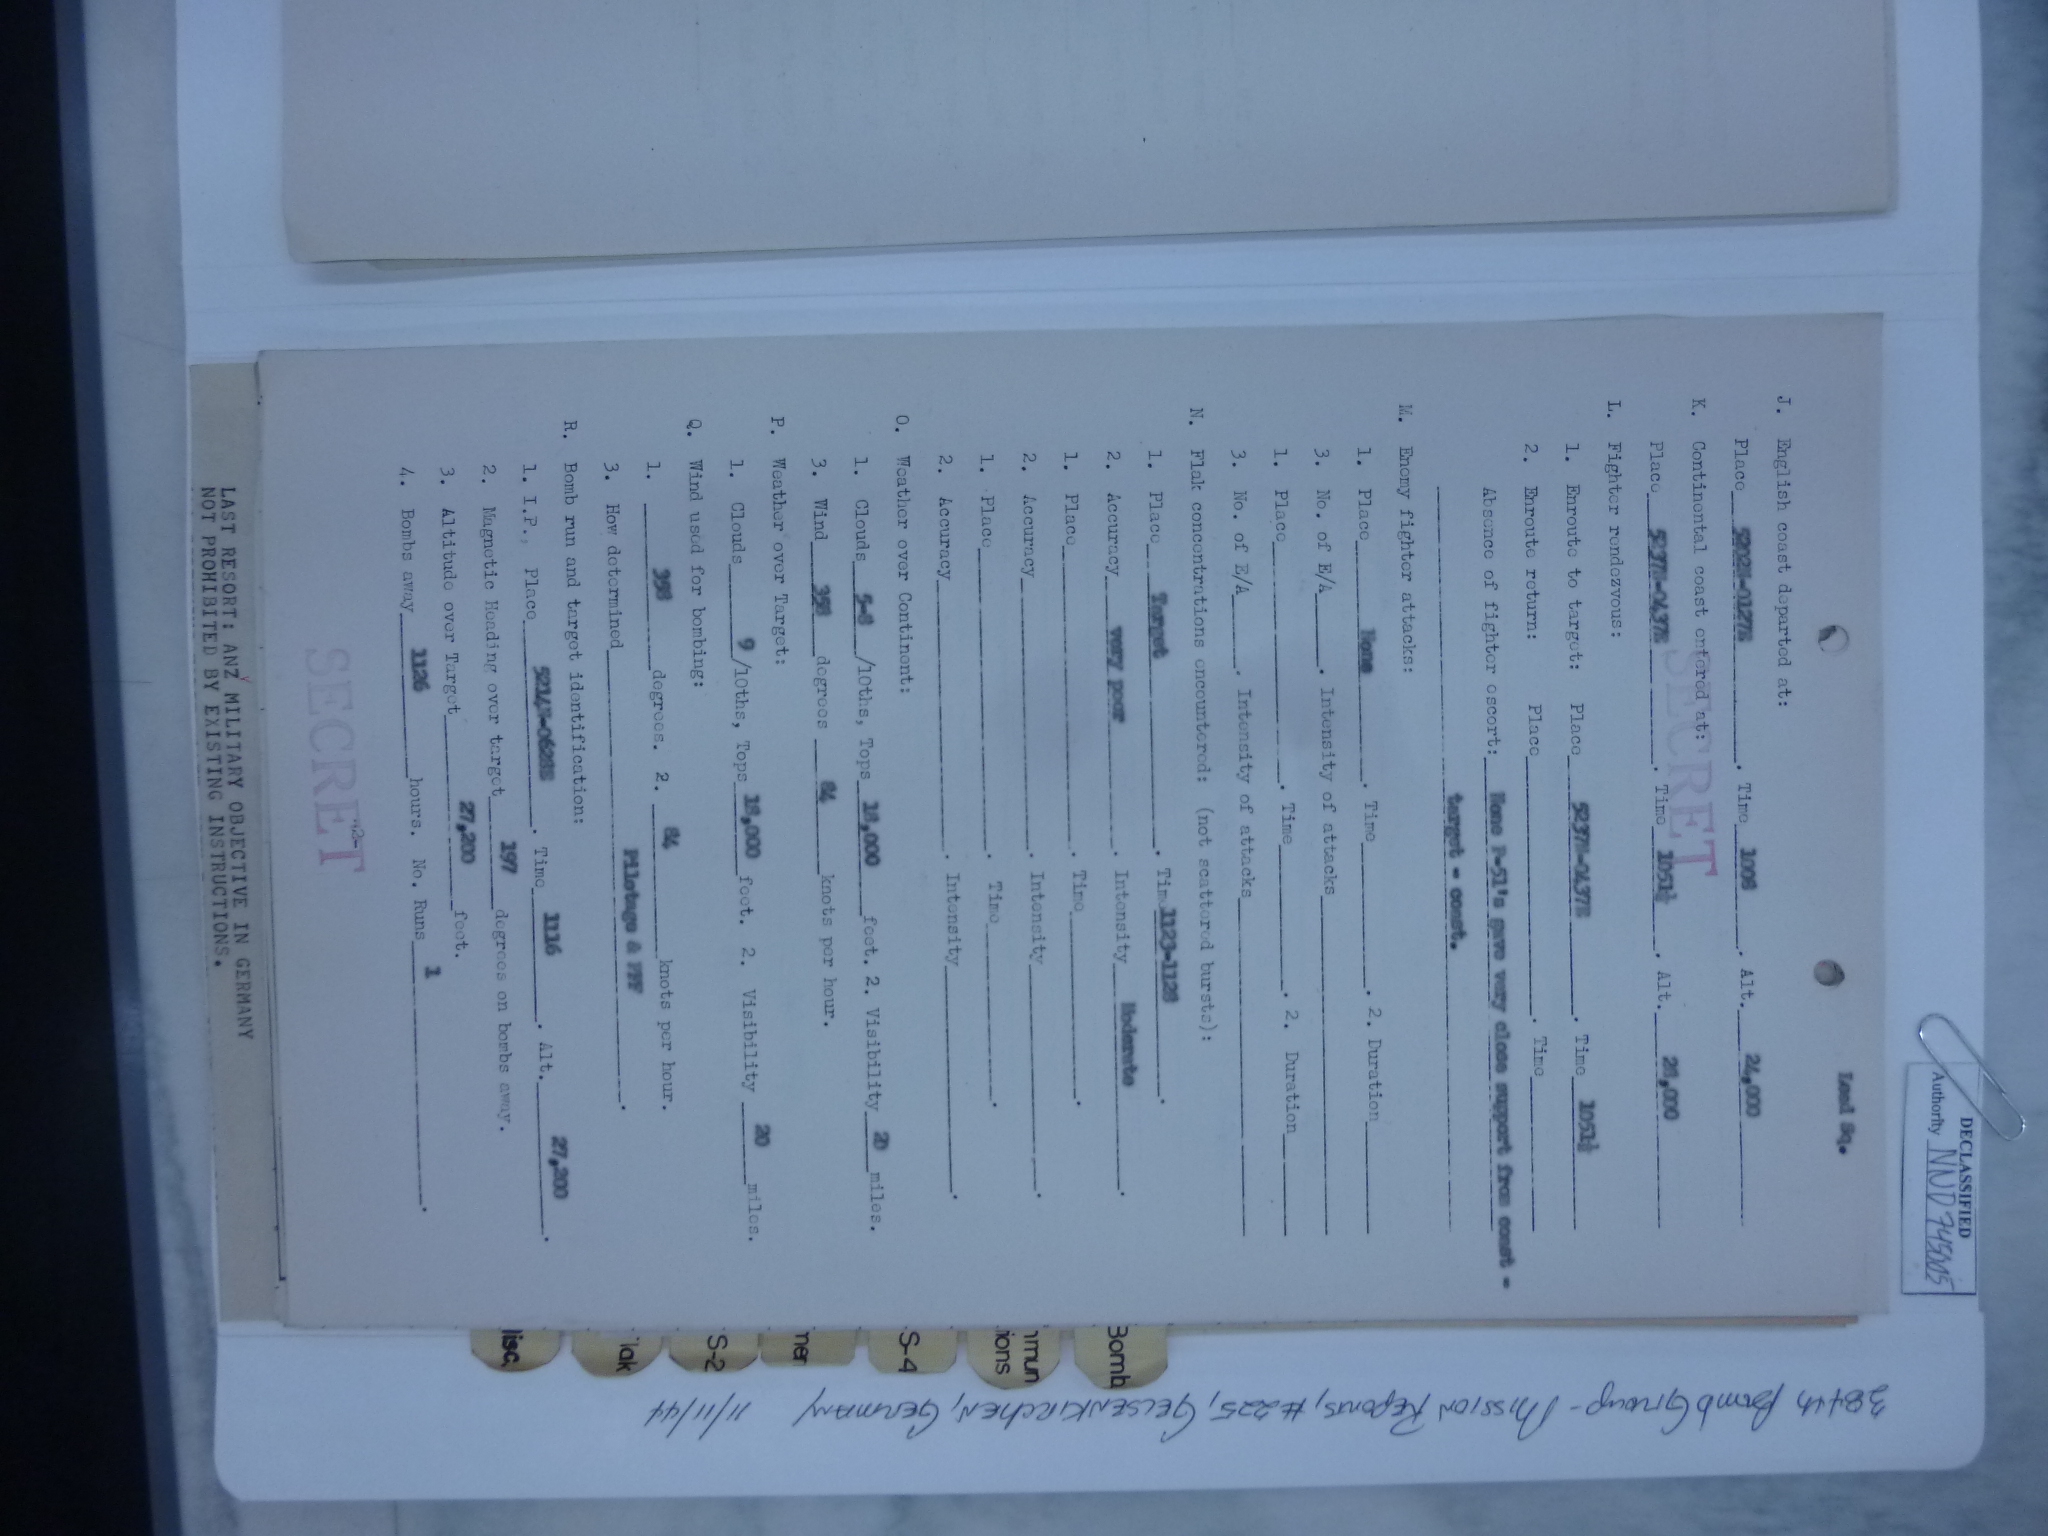 DECLASSIFIED
Authority NND 745005
Lead Sq.
SECRET
J. English coast departed at:
Place 5202N-0127E. Time 1008. Alt. 24,000
K. Continental coast entered at:
Place 5237N-0437E. Time 1051½. Alt. 28,000
L. Fighter rendezvous:
1. Enroute to target: Place 5237N-0437E. Time 1051½
2. Enroute return: Place. Time
Absence of fighter escort: None P-51's gave very close support from coast -
target - coast.
M. Enemy fighter attacks:
1. Place None. Time. 2. Duration
3. No. of E/A. Intensity of attacks
1. Place. Time. 2. Duration
3. No. of E/A. Intensity of attacks
N. Flak concentrations encountered: (not scattered bursts):
1. Place Target. Time 1123-1128.
2. Accuracy very poor. Intensity Moderate.
1. Place. Time.
2. Accuracy. Intensity.
1. Place. Time.
2. Accuracy. Intensity.
O. Weather over Continent:
1. Clouds 5-8 /10ths, Tops 18,000 feet. 2. Visibility 20 miles.
3. Wind 358 degrees 84 knots per hour.
P. Weather over Target:
1. Clouds 9 /10ths, Tops 18,000 feet. 2. Visibility 20 miles.
Q. Wind used for bombing:
1. 358 degrees. 2. 84 knots per hour.
3. How determined Pilotage & PFF.
R. Bomb run and target identification:
1. I.P., Place. Time 1116. Alt. 27,200.
2. Magnetic Heading over target 197 degrees on bombs away.
3. Altitude over Target 27,200 feet.
4. Bombs away 1126 hours. No. Runs 1.
-2-
SECRET
LAST RESORT: ANY MILITARY OBJECTIVE IN GERMANY
NOT PROHIBITED BY EXISTING INSTRUCTIONS.
Bomb
mmun
ions
S-4
ner
S-2
lak
lisc.
384th Bomb Group - Mission Reports, #225, GELSENKIRCHEN, GERMANY 11/11/44